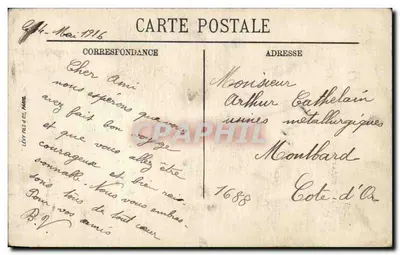 CARTE POSTALE
Mai 1916
CORRESPONDANCE
ADRESSE
Cher Ami
nous espérons que vous
avez fait bon voyage
et que vous allez être
courageux et bien
Nous vous embras-
sons tous de tout cœur
Pour vos amis
B. V.
LÉVY FILS & Cie, PARIS
Monsieur
Arthur Cathelain
usines métallurgiques
Montbard
Cote-d'Or
1688
CPHRIL